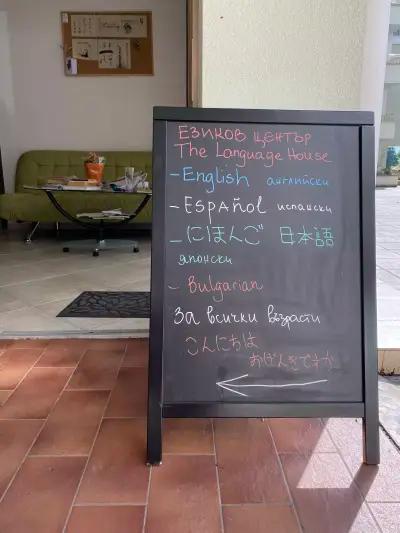 Езиков център
The Language House
- English английски
- Español испански
- にほんご 日本語
японски
- Bulgarian
За всички възрасти
こんにちは
おげんきですか